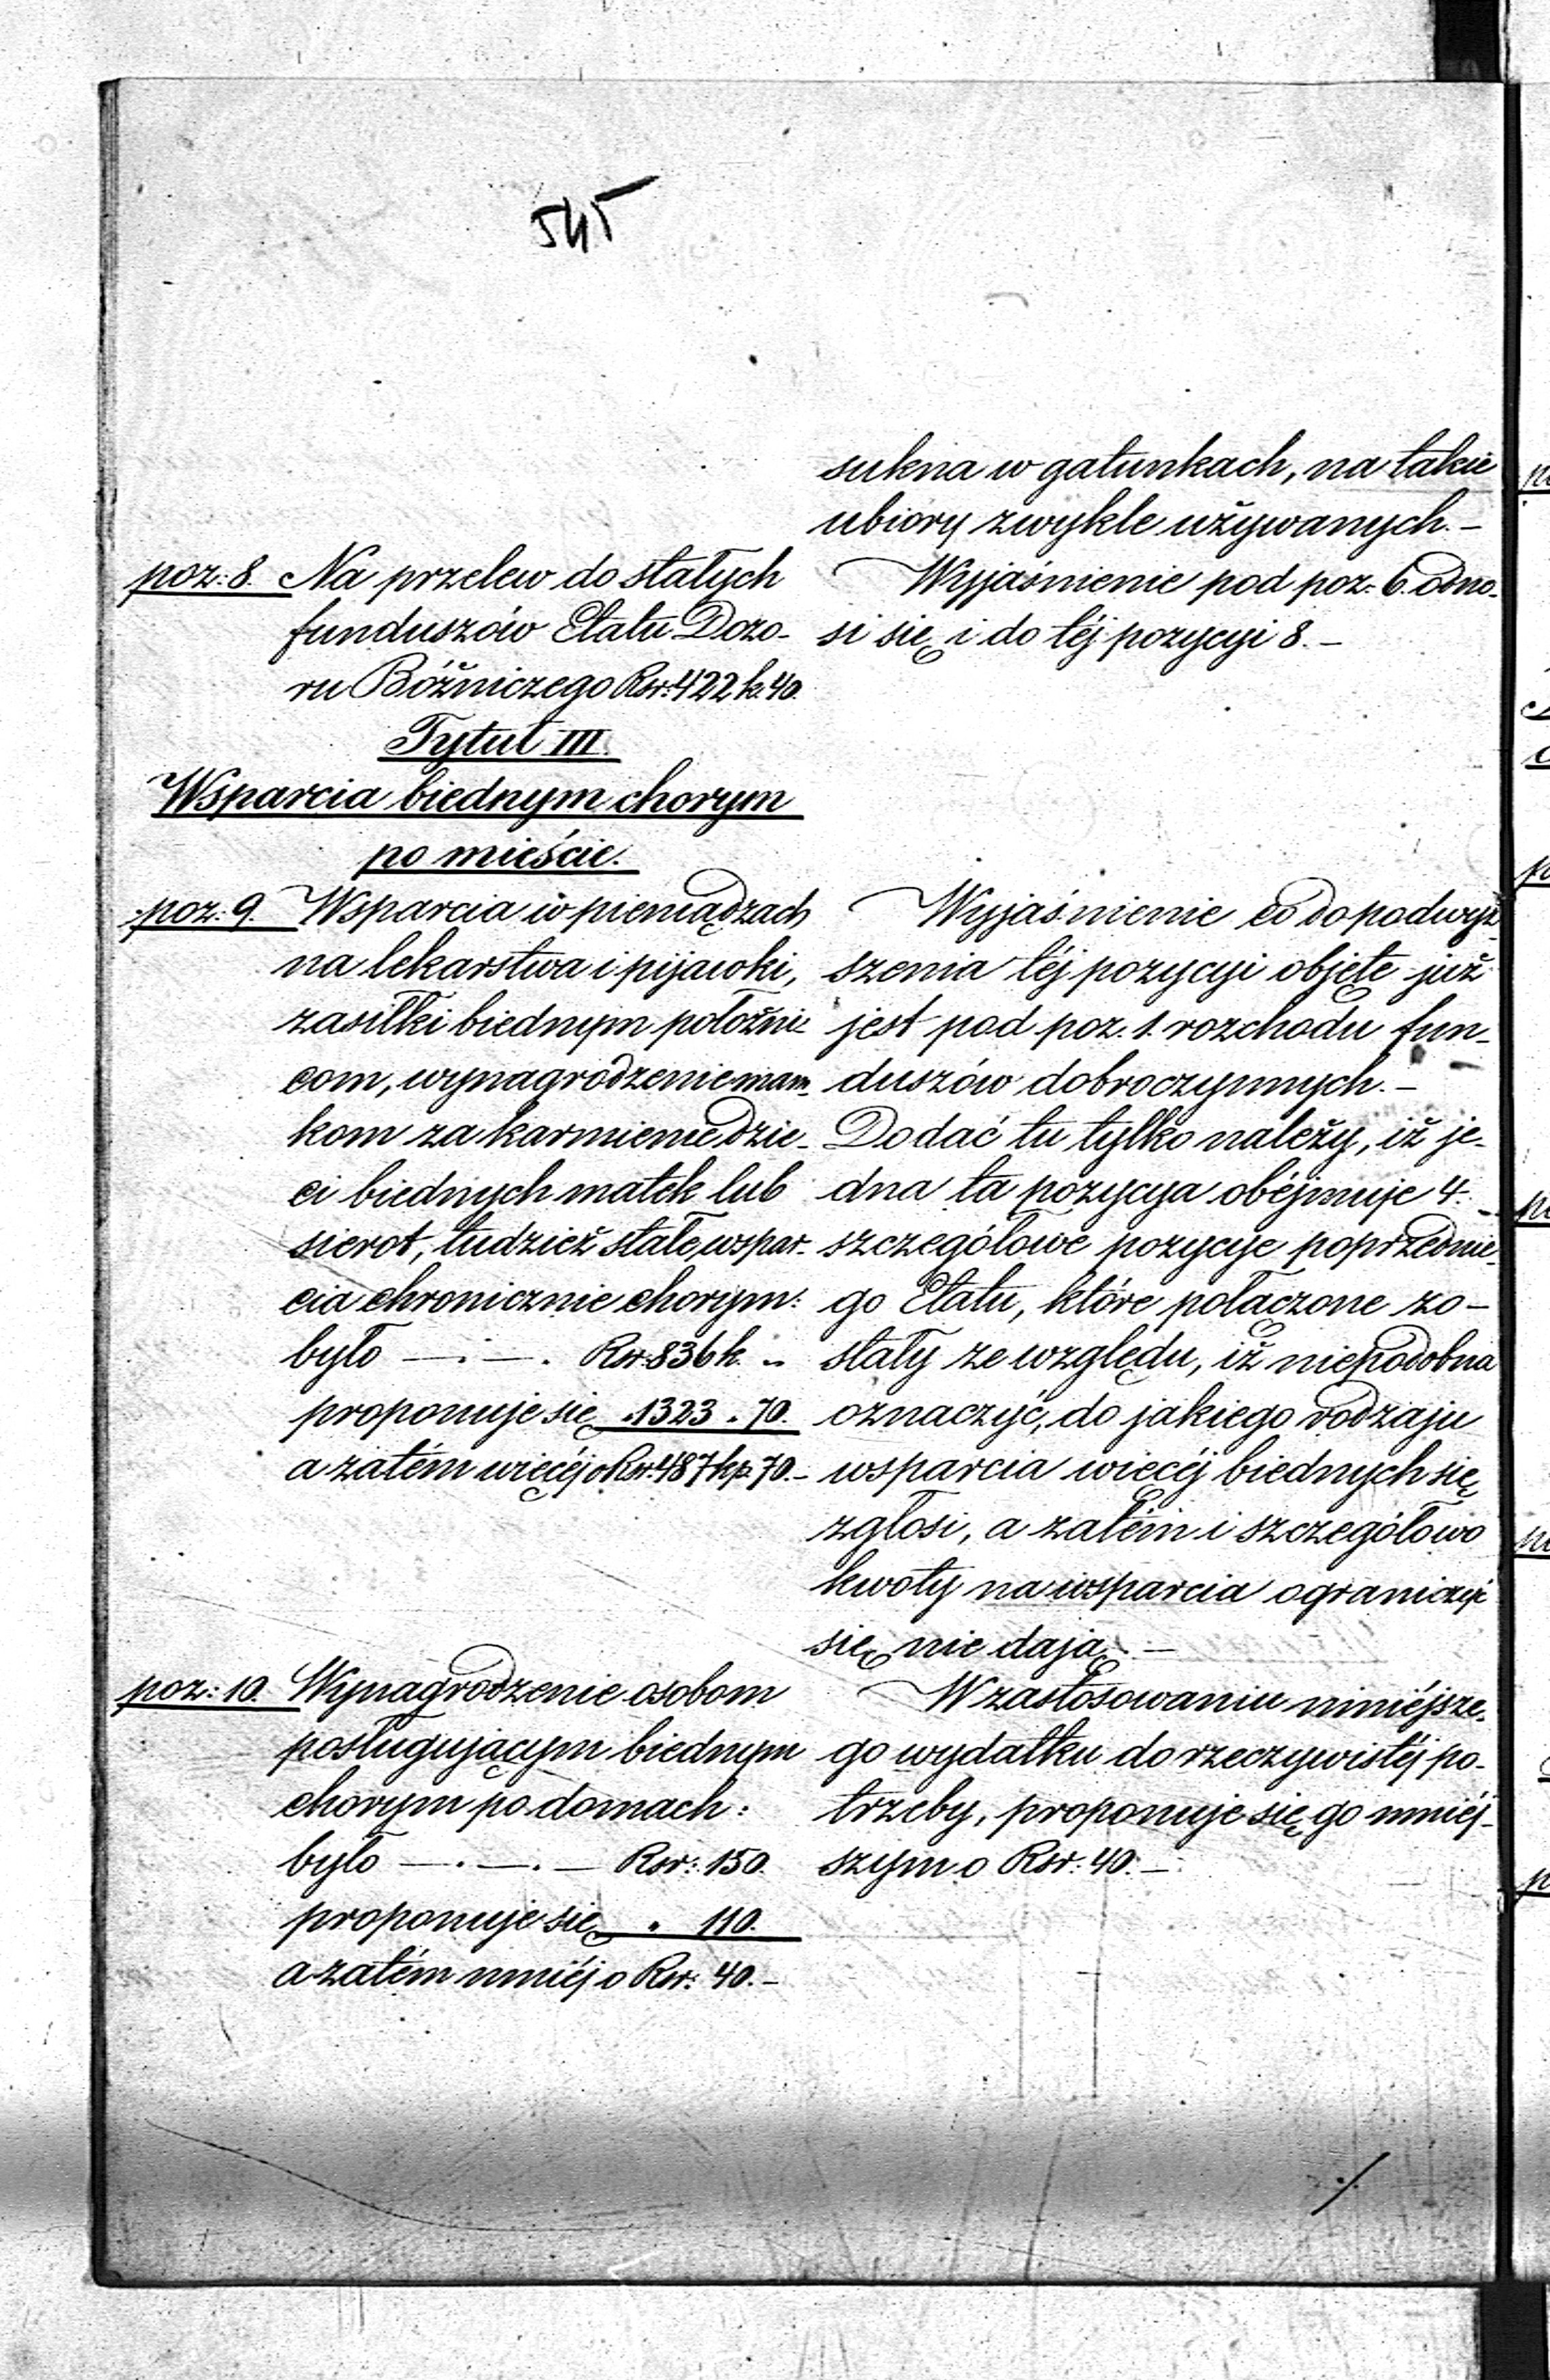 545
sukna w gatunkach, na takie
ubiory zwykle używanych.—
poz: 8. Na przelew do stałych
funduszów Etatu Dozo-
ru Bóżniczego Rsr: 422 k. 40.
Wyjaśnienie pod poz: 6. odno-
si się i do téj pozycyi 8.—
Tytuł III.
Wsparcia biednym chorym
po mieście.
poz: 9. Wsparcia w pieniądzach
na lekarstwa i pijawki,
zasiłki biednym położni-
com, wynagrodzenie mam-
kom za karmienie dzie-
ci biednych matek lub
sierot, tudzież stałe wspar-
cia chronicznie chorym:
było — . — . Rsr: 836 k. „
proponuje się „ 1323 „ 70.
a zatém więcéj o Rsr: 487 kp. 70.—
Wyjaśnienie co do podwyż-
szenia téj pozycyi objęte już
jest pod poz. 1. rozchodu fun-
duszów dobroczynnych.—
Dodać tu tylko należy, iż je-
dna ta pozycya obéjmuje 4.
szczegółowe pozycye poprzednie-
go Etatu, które połączone zo-
stały ze względu, iż niepodobna
oznaczyć, do jakiego rodzaju
wsparcia więcéj biednych się
zgłosi, a zatém i szczegółowo
kwoty na wsparcia ograniczyć
się nie dają.—
poz: 10. Wynagrodzenie osobom
posługującym biednym
chorym po domach:
było — . — . — Rsr: 150.
proponuje się „ 110.
a zatém mniéj o Rsr: 40.—
W zastosowaniu niniéjsze-
go wydatku do rzeczywistéj po-
trzeby, proponuje się go mniéj-
szym o Rsr: 40.—
./.